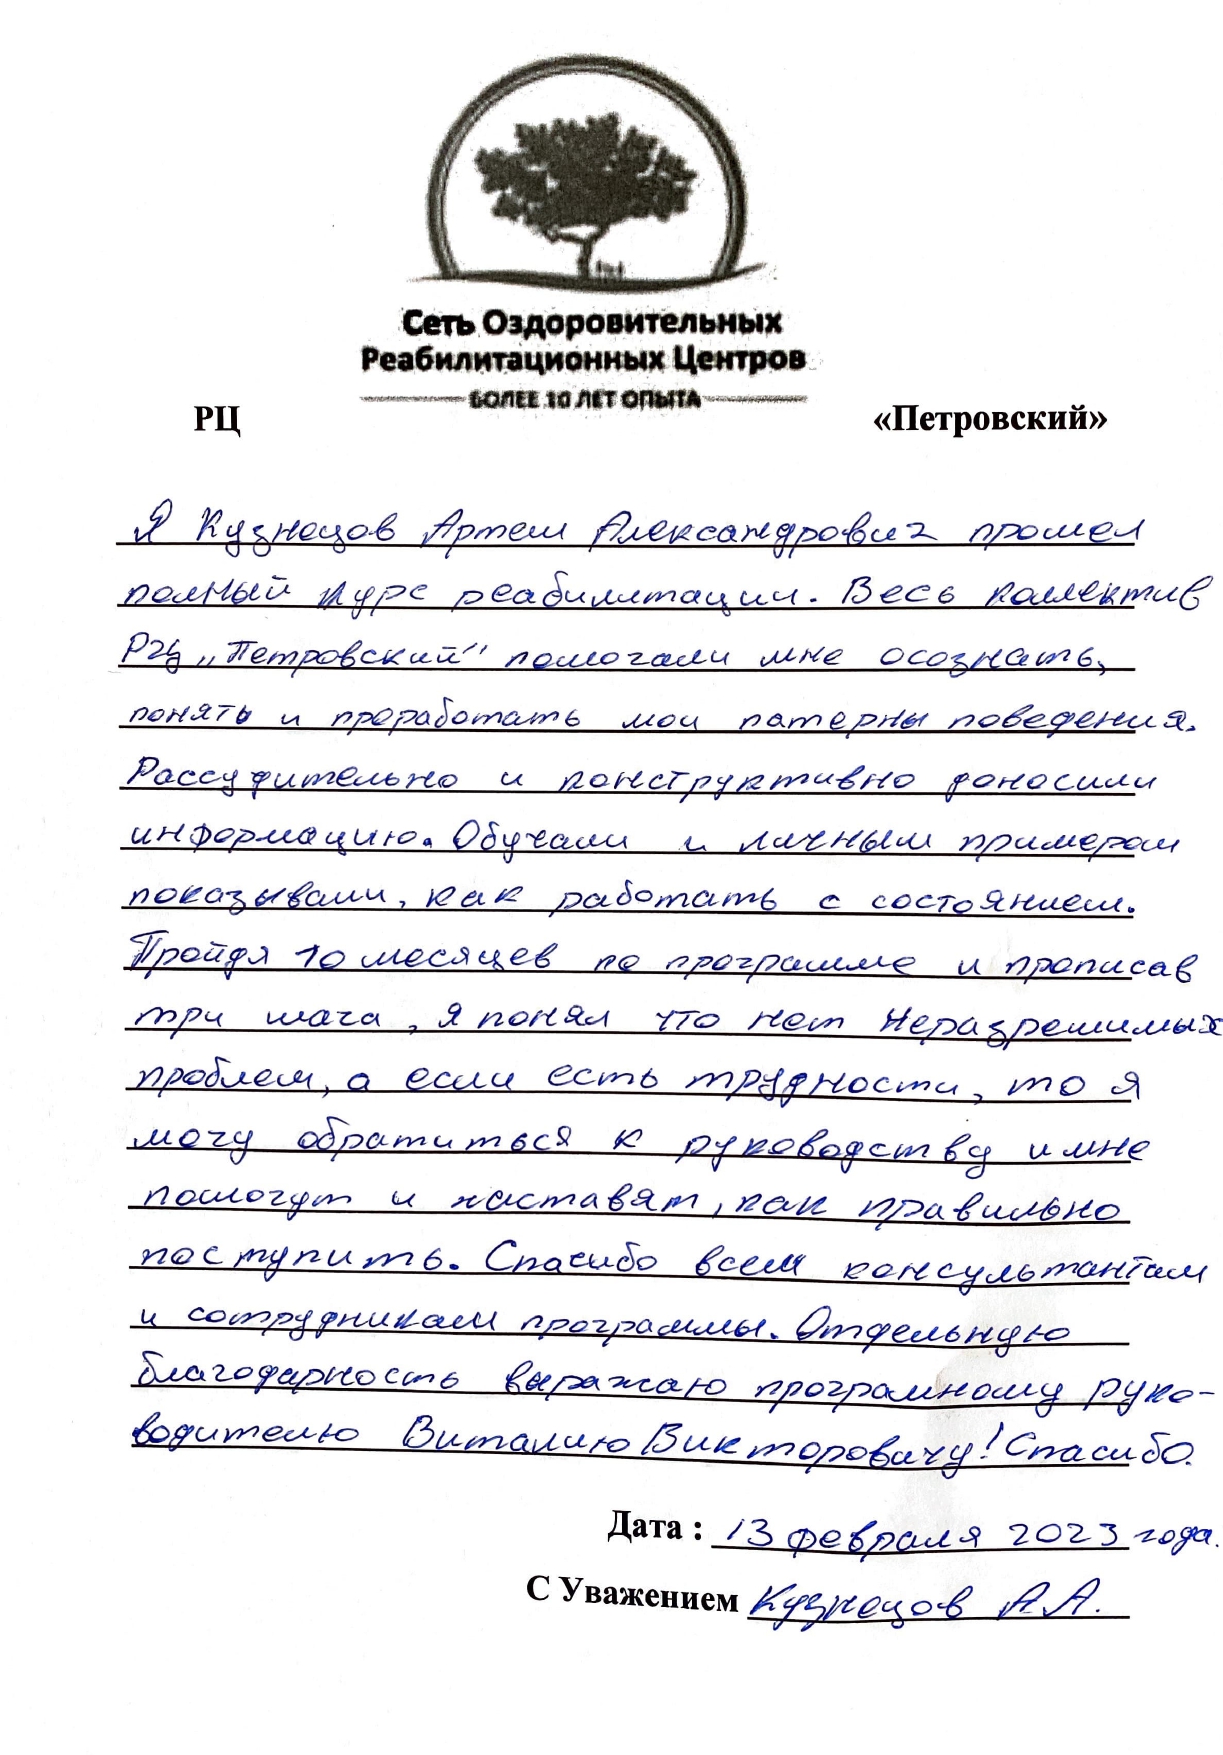 Сеть Оздоровительных
Реабилитационных Центров
БОЛЕЕ 10 ЛЕТ ОПЫТА
РЦ «Петровский»
Я Кузнецов Артем Александрович прошел
полный курс реабилитации. Весь коллектив
РЦ „Петровский" помогали мне осознать,
понять и проработать мои патерны поведения.
Рассудительно и конструктивно доносили
информацию. Обучали и личным примером
показывали, как работать с состоянием.
Пройдя 10 месяцев по программе и прописав
три шага, я понял что нет неразрешимых
проблем, а если есть трудности, то я
могу обратиться к руководству и мне
помогут и наставят, как правильно
поступить. Спасибо всем консультантам
и сотрудникам программы. Отдельную
благодарность выражаю програмному руко-
водителю Виталию Викторовичу! Спасибо.
Дата : 13 февраля 2023 года.
С Уважением Кузнецов А.А.